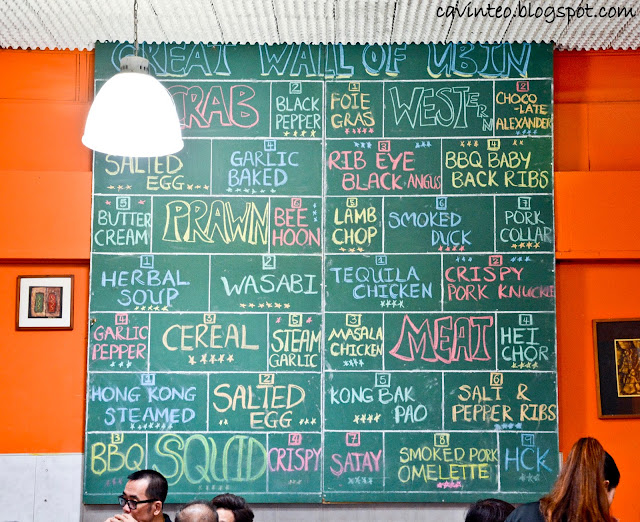 cavinteo.blogspot.com
GREAT WALL OF UBIN
CRAB
2
BLACK
PEPPER
1
FOIE
GRAS
WESTERN
2
CHOCO
-LATE
ALEXANDER
SALTED
EGG
4
GARLIC
BAKED
3
RIB EYE
BLACK ANGUS
4
BBQ BABY
BACK RIBS
5
BUTTER
CREAM
PRAWN
6
BEE
HOON
5
LAMB
CHOP
6
SMOKED
DUCK
7
PORK
COLLAR
1
HERBAL
SOUP
2
WASABI
1
TEQUILA
CHICKEN
2
CRISPY
PORK KNUCKLE
4
GARLIC
PEPPER
3
CEREAL
5
STEAM
GARLIC
3
MASALA
CHICKEN
MEAT
4
HEI
CHOR
HONG KONG
STEAMED
2
SALTED
EGG
5
KONG BAK
PAO
6
SALT &
PEPPER RIBS
3
BBQ
SQUID
4
CRISPY
7
SATAY
8
SMOKED PORK
OMELETTE
9
HCK